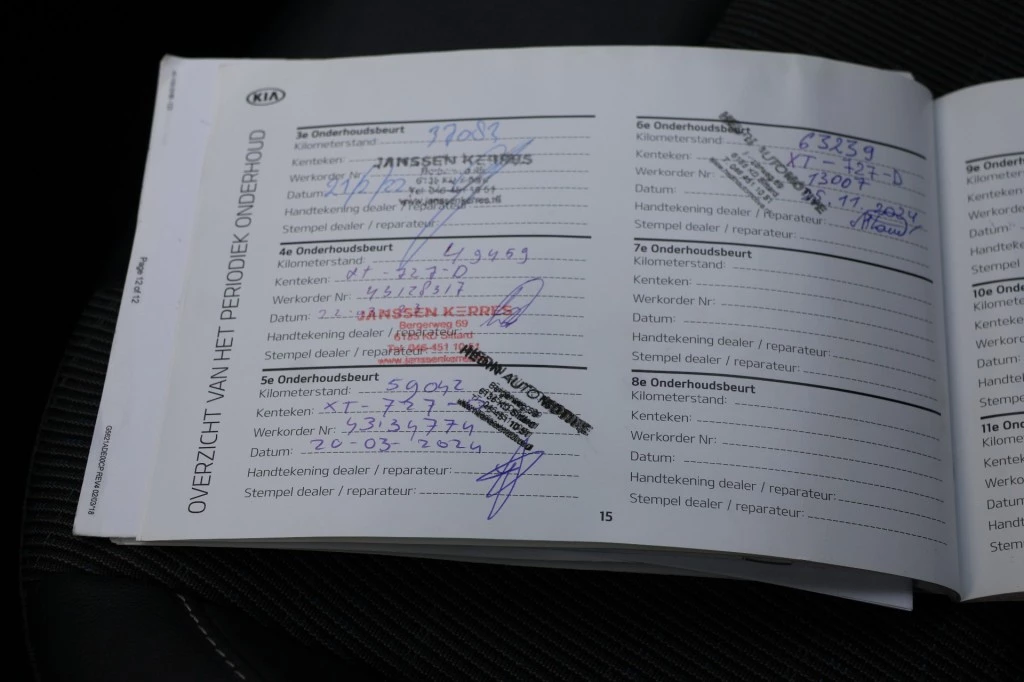 KIA
OVERZICHT VAN HET PERIODIEK ONDERHOUD
Page 12 of 12
3e Onderhoudsbeurt
Kilometerstand: 37083
Kenteken:
Werkorder Nr:
Datum: 21/2/22
Handtekening dealer / reparateur:
Stempel dealer / reparateur:
JANSSEN KERRES
Tel. 046-451 10 51
www.janssenkerres.nl
4e Onderhoudsbeurt
Kilometerstand: 49459
Kenteken: XT-727-D
Werkorder Nr: 43128317
Datum:
Handtekening dealer / reparateur:
Stempel dealer / reparateur:
JANSSEN KERRES
Bergerweg 69
6135 KD Sittard
Tel. 046-451 10 51
5e Onderhoudsbeurt
Kilometerstand: 59042
Kenteken: XT-727-D
Werkorder Nr: 43134774
Datum: 20-03-2024
Handtekening dealer / reparateur:
Stempel dealer / reparateur:
HEDIN AUTOMOTIVE
6e Onderhoudsbeurt
Kilometerstand: 63239
Kenteken: XT-727-D
Werkorder Nr: 13007
Datum: 11.2024
Handtekening dealer / reparateur:
Stempel dealer / reparateur:
HEDIN AUTOMOTIVE
7e Onderhoudsbeurt
Kilometerstand:
Kenteken:
Werkorder Nr:
Datum:
Handtekening dealer / reparateur:
Stempel dealer / reparateur:
8e Onderhoudsbeurt
Kilometerstand:
Kenteken:
Werkorder Nr:
Datum:
Handtekening dealer / reparateur:
Stempel dealer / reparateur:
15
9e Onder
Kilometer
Kenteken
Werkorde
Datum:
Handteke
Stempel
10e Onde
Kilomete
Kenteken
Werkord
Datum:
Handtek
Stempe
11e On
Kilome
Kentek
Werko
Datum
Handt
Stem